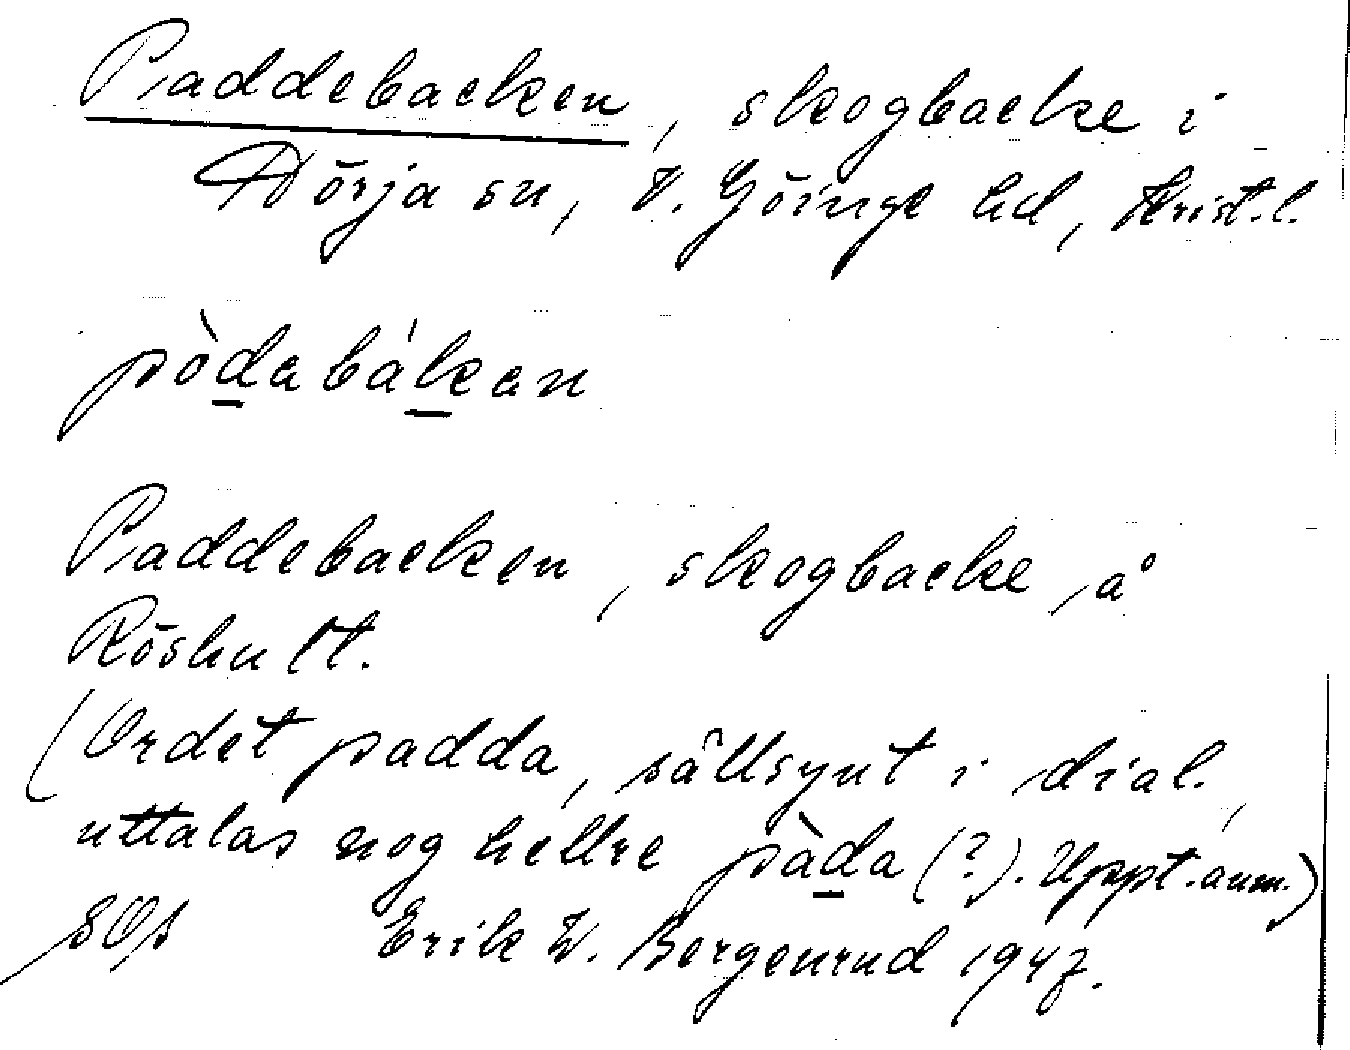 Paddebacken, skogbacke i
Nörja sn, V. Göinge hd, Krist.l.
pòdabákan
Paddebacken, skogbacke å
Röshult.
(Ordet padda, sällsynt i dial.,
uttalas nog hellre pàda (?). Uppt. anm.)
Erik W. Bergenrud 1947.